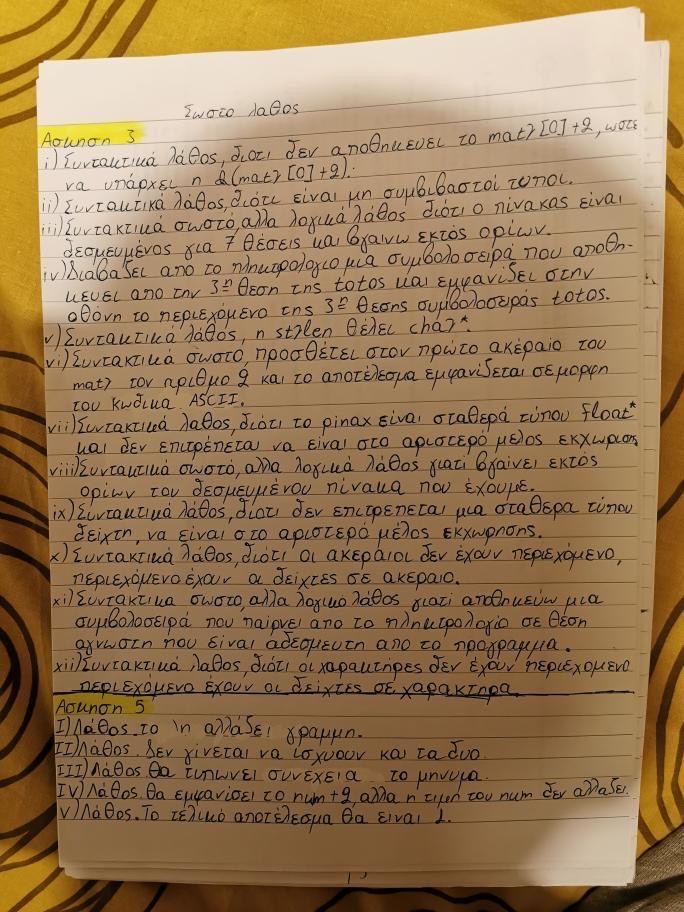 Σωστο λαθος
Ασκηση 3
i) Συντακτικά λάθος, διοτι δεν αποθηκευει το matr[0]+2, ωστε
να υπάρχει η &(matr[0]+2).
ii) Συντακτικά λάθος, διότι είναι μη συμβιβαστοί τυποι.
iii) Συντακτικά σωστό, αλλα λογικά λάθος διότι ο πίνακας είναι
δεσμευμένος για 7 θέσεις και βγαινω εκτός ορίων.
iv) Διαβαζει απο το πληκτρολογιο μια συμβολοσειρά που αποθη-
κευει απο την 3η θεση της totos και εμφανιζει στην
οθόνη το περιεχόμενο της 3ης θεσης συμβολοσειράς totos.
v) Συντακτικά λάθος, η strlen θέλει char*.
vi) Συντακτικά σωστό, προσθέτει στον πρώτο ακέραιο του
matr τον αριθμο 2 και το αποτέλεσμα εμφανίζεται σε μορφη
του κωδικα ASCII.
vii) Συντακτικά λαθος, διότι το pinax είναι σταθερά τύπου float*
και δεν επιτρέπεται να είναι στο αριστερό μελος εκχωρισης
viii) Συντακτικά σωστό, αλλα λογικά λάθος γιατί βγαίνει εκτός
ορίων του δεσμευμένου πίνακα που έχουμε.
ix) Συντακτικά λάθος, διοτι δεν επιτρέπεται μια σταθερα τύπου
δείχτη, να είναι στο αριστερό μέλος εκχωρησης.
x) Συντακτικά λάθος, διότι οι ακεραιοι δεν έχουν περιεχόμενο,
περιεχόμενο έχουν οι δείχτες σε ακεραιο.
xi) Συντακτικα σωστο, αλλα λογικο λάθος γιατι αποθηκεύω μια
συμβολοσειρά που παίρνει απο το πληκτρολογίο σε θέση
αγνωστη που είναι αδεσμευτη απο το πρόγραμμα.
xii) Συντακτικά λαθος, διότι οι χαρακτήρες δεν έχουν περιεχομενο
περιεχόμενο έχουν οι δείχτες σε χαρακτηρα.
Ασκηση 5
I) Λάθος. το \n αλλάζει γραμμη.
II) Λάθος. Δεν γίνεται να ισχυουν και τα δυο.
III) Λάθος θα τυπωνει συνεχεια το μηνυμα.
IV) Λάθος. θα εμφανίσει το num+2, αλλα η τιμη του num δεν αλλαζει.
V) Λάθος. Το τελικό αποτέλεσμα θα ειναι 1.